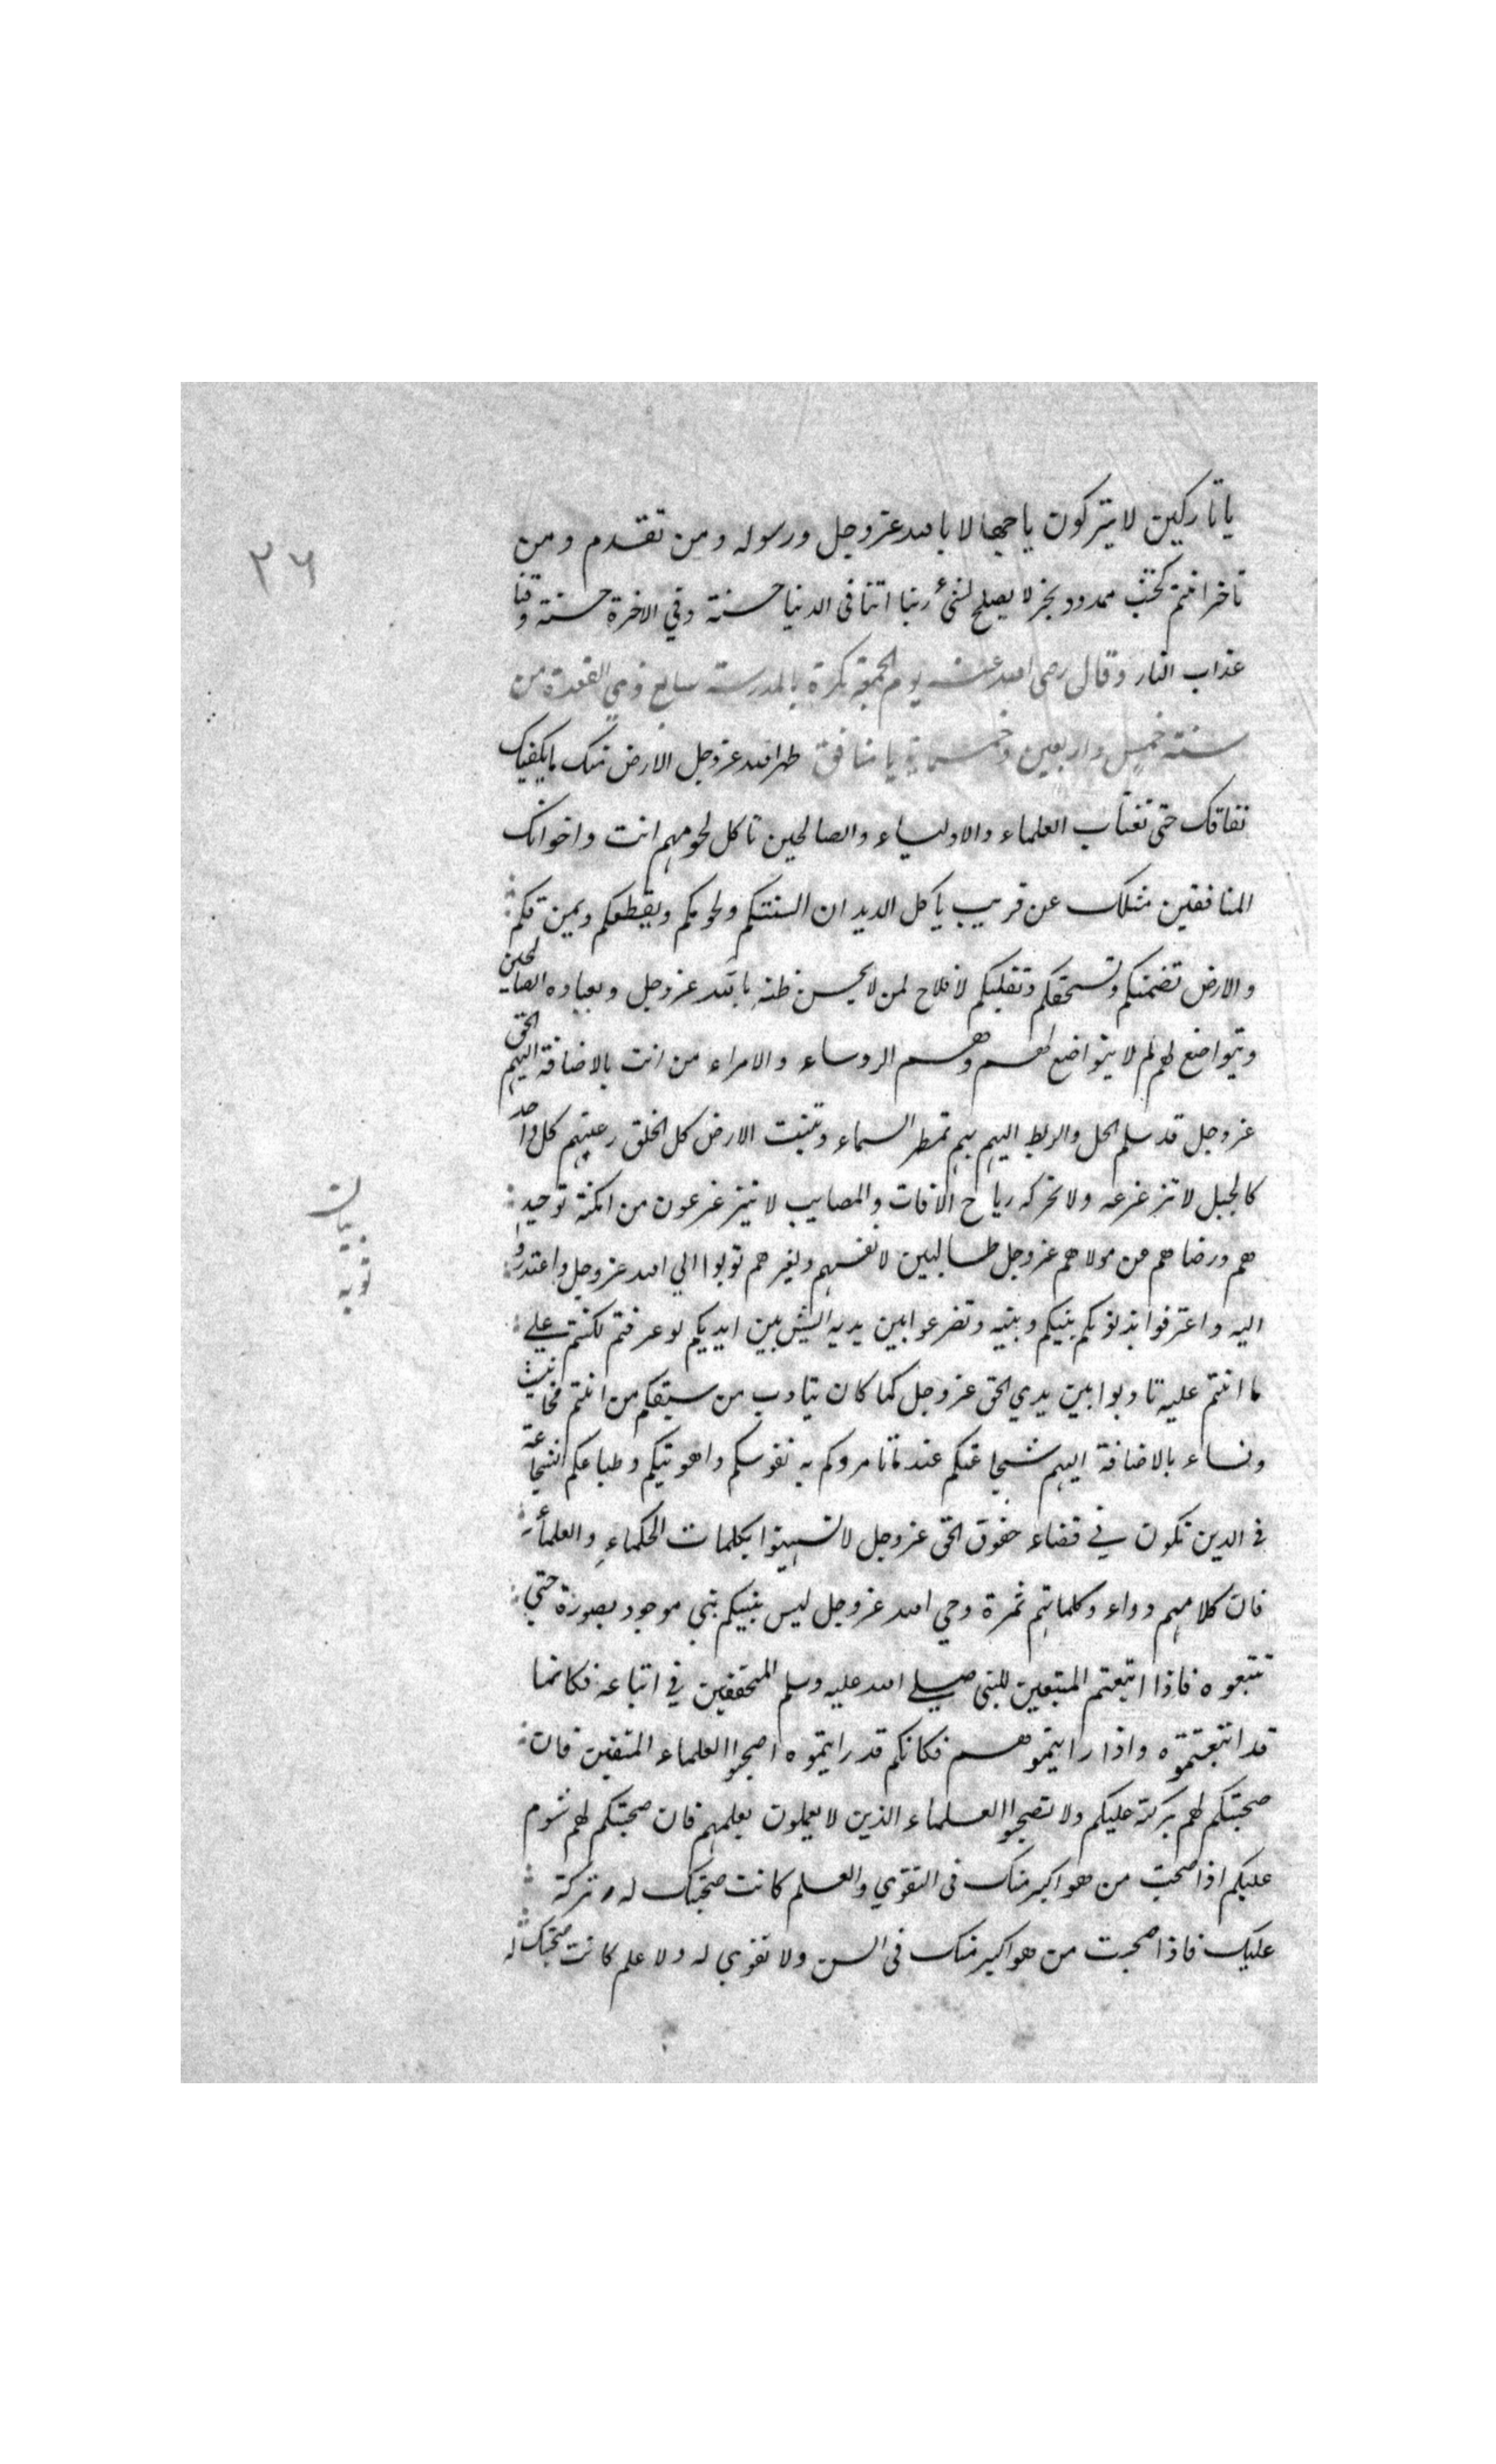 يا تاركين لا يتركون يا جهالا بالله عز وجل ورسوله ومن تقدم ومن
تاخر انتم كخشب ممدود نخر لا يصلح لشئ ربنا اتنا في الدنيا حسنة وفي الاخرة حسنة وقنا
عذاب النار وقال رضي الله عنه يوم الجمعة بكرة بالمدرسة سابع ذي القعدة من
سنة خمس واربعين وخمسماية يا منافق طهر الله عز وجل الارض منك ما يكفيك
نفاقك حتى تغتاب العلماء والاولياء والصالحين تاكل لحومهم انت واخوانك
المنافقين مثلك عن قريب يأكل الديدان السنتكم ولحومكم ويقطعكم ويمزقكم
والارض تضمنكم وتسحقكم وتقلبكم لا فلاح لمن لا يحسن ظنه بالله عز وجل وبعباده الصالحين
ويتواضع لهم لم لا يتواضع لهم وهم الروساء والامراء من انت بالاضافة اليهم الحق
عز وجل قد سلم الحل والربط اليهم بهم تمطر السماء وتنبت الارض كل الخلق رعيتهم كل واحد
كالجبل لا تزعزعه ولا تحركه رياح الافات والمصايب لا يتزعزعون من امكنة توحيد
هم ورضاهم من مولاهم عز وجل طالبين لانفسهم ولغيرهم توبوا الي الله عز وجل واعتدروا
اليه واعترفوا بذنوبكم بينكم وبينه وتضرعوا بين يديه ايش بين ايديكم لو عرفتم لكنتم علي
ما انتم عليه تادبوا بين يدي الحق عز وجل كما كان يتادب من سبقكم من انتم مخانيث
ونساء بالاضافة اليهم شجاعتكم عند ما تامروكم به نفوسكم واهويتكم وطباعكم الشجاعة
في الدين تكون في قضاء حقوق الحق عز وجل لا تستهينوا بكلمات الحكماء والعلماء
فان كلامهم دواء وكلماتهم ثمرة وحي الله عز وجل ليس بينكم نبي موجود بصورة حتي
تتبعوه فاذا اتبعتم المتبعين للنبي صلي الله عليه وسلم المتحققين في اتباعه فكانما
قد اتبعتموه واذا رايتموهم فكانكم قد رايتموه اصحبوا العلماء المتقين فان
صحبتكم لهم بركة عليكم ولا تصحبوا العلماء الذين لا يعملون بعلمهم فان صحبتكم لهم شوم
عليكم اذا صحبت من هو اكبر منك في التقوي والعلم كانت صحبتك له بركة
عليك فاذا صحبت من هو اكبر منك في السن ولا تقوي له ولا علم كانت صحبتك له
٢٦
بيان
توبه